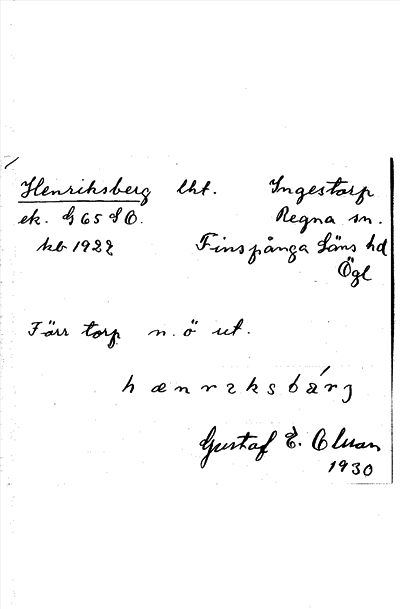 Henriksberg lht. Ingestorp
ek. G 65 SO. Regna sn.
kb 1922 Finspånga Läns hd
Ögl
Förr torp n. ö ut.
hænrɩksbárj
Gustaf E. Olman
1930